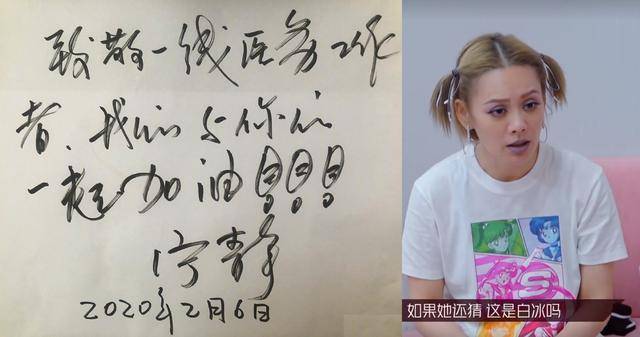 致敬一线医务工作
者、我们与你们
一起加油！！！
宁静
2020年2月6日
如果她还猜 这是白冰吗